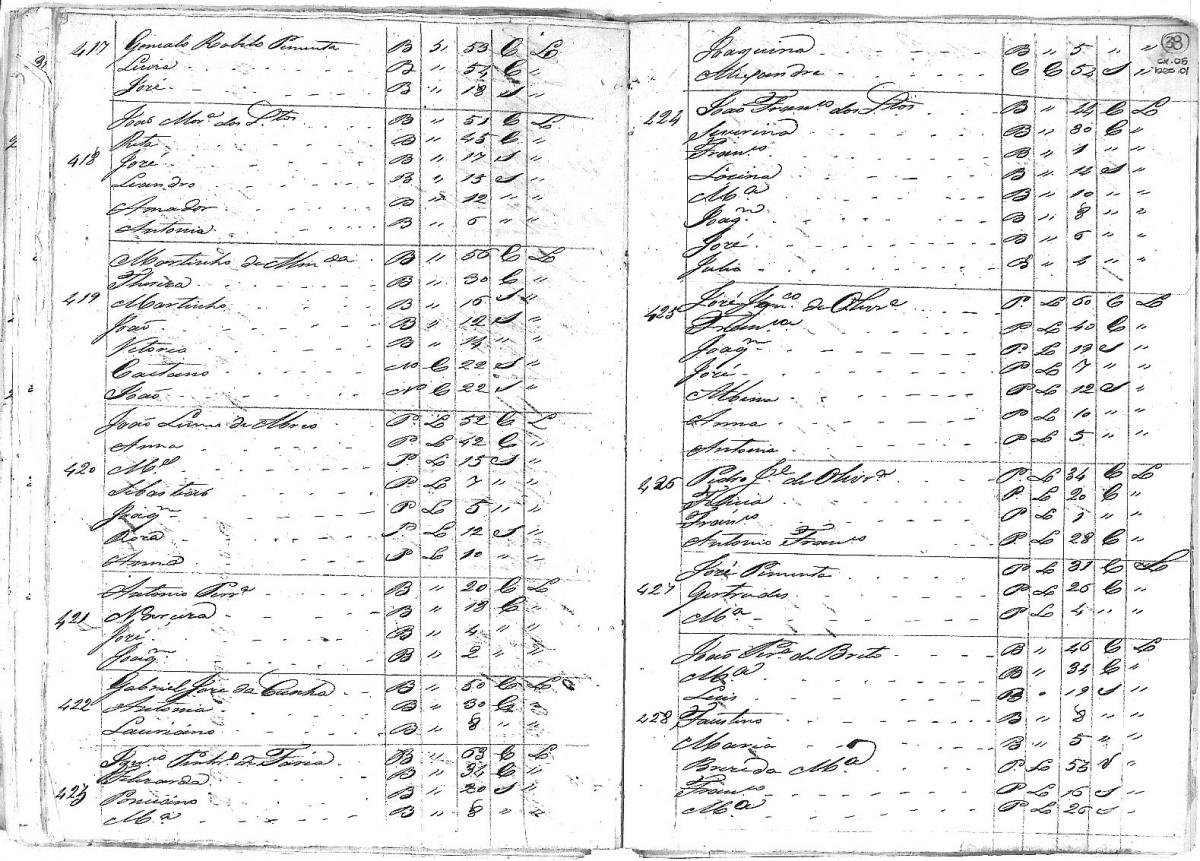 417 Gonsalo Rabelo Pimenta B " 53 C L
Luiza B " 54 C "
José B " 18 S "
João Mor.ª dos S.tos B " 51 C L
Rita B " 45 C "
418 José B " 17 S "
Leandro B " 15 S "
Amador B " 12 " "
Antonia B " 6 " "
Martinho de Miranda B " 56 C L
Thereza B " 30 C "
419 Martinho B " 16 S "
João B " 12 S "
Vitoria B " 14 "
Caetano N C 22 S "
João N C 22 S "
João Lunes de Abreo P L 52 C L
Anna P L 42 C "
420 M.el P L 15 S "
Sebastião P L 7 " "
Joaq.m P L 5 " "
Roza P L 12 S "
Anna P L 10 " "
Antonio Per.ª B " 20 C L
421 B " 18 C "
José B " 4 " "
Joaq.m B " 2 " "
Gabriel José da Cunha B " 50 C L
422 Antonia B " 30 C "
Lauriano B " 8 " "
de Faria B " 63 C L
B " 34 C "
423 Ponciano B " 20 S "
M.ª B " 8 " "
38
cx-05
Joaquina B " 5 " "
Alexandre C C 52 S "
424 João Fran.co dos S.tos B " 44 C L
Severina B " 30 C "
Fran.co B " 1 " "
Lozina B " 14 S "
M.ª B " 10 " "
Joaq.m B " 8 " "
José B " 6 " "
Julia B " 4 " "
425 José Joaq.m de Olivr.ª P L 60 C L
Fran.ca P L 40 C "
Joaq.m P L 19 S "
José P L 7 " "
Albina P L 12 S "
Anna P L 10 " "
Antonia P L 5 " "
426 Pedro de Olivr.ª P L 34 C L
Felicia P L 20 C "
Fran.co P L 1 " "
Antonio Fran.co P L 28 C "
José Pimenta P L 31 C L
427 Gertrudes P L 26 C "
M.ª P L 4 " "
João de Brito B " 46 C L
M.ª B " 34 C "
Luis B " 19 S "
428 Faustino B " 8 " "
Maria B " 5 " "
M.ª P L 53 S "
Fran.co P L 16 S "
M.ª P L 26 S "